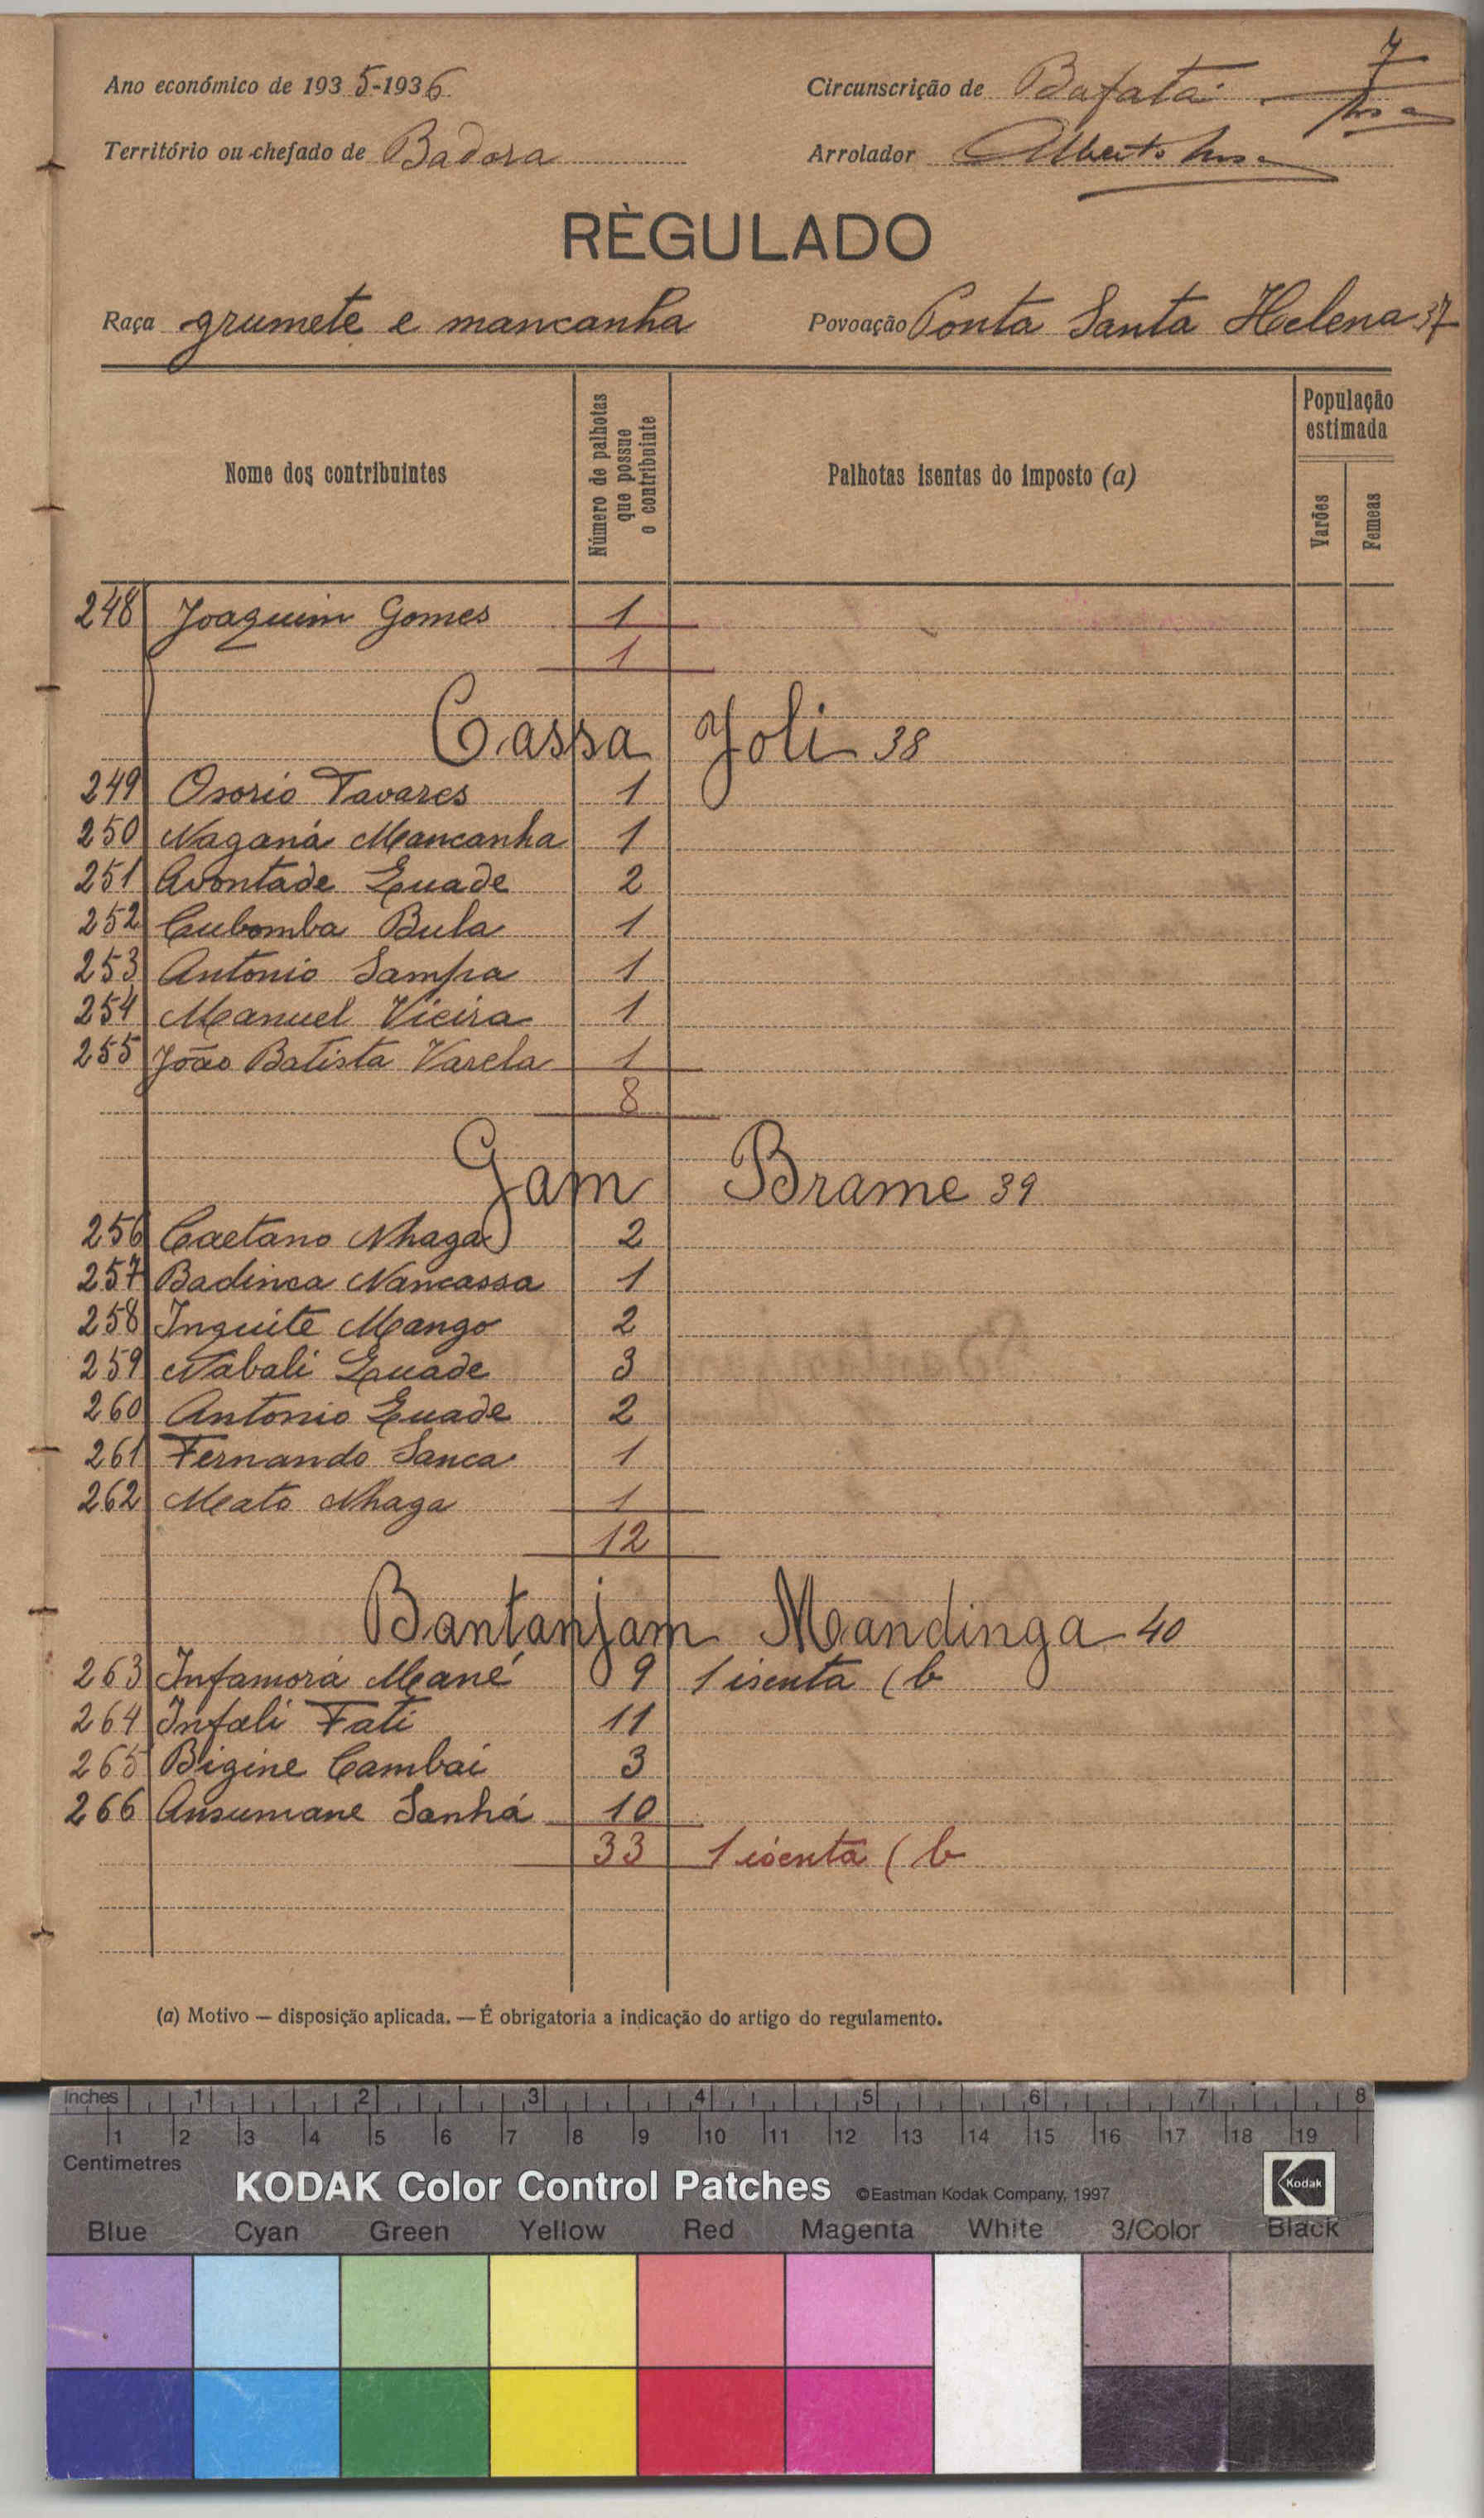 7
Ano económico de 1935-1936 Circunscrição de Bafatá
Território ou chefado de Badora Arrolador Alberto
RÈGULADO
Raça grumete e mancanha Povoação Ponta Santa Helena 37
Nome dos contribuintes Número de palhotas que possue o contribuinte Palhotas isentas do imposto (a) População estimada
Varões Femeas
248 Joaquim Gomes 1
1
Cassa Joli 38
249 Osorio Tavares 1
250 Naganá Mancanha 1
251 Avontade Quade 2
252 Cubomba Bula 1
253 Antonio Sampa 1
254 Manuel Vieira 1
255 João Batista Varela 1
8
Gam Brame 39
256 Caetano Nhaga 2
257 Badinca Nancassa 1
258 Inquite Mango 2
259 Nabali Quade 3
260 Antonio Quade 2
261 Fernando Sanca 1
262 Mato Nhaga 1
12
Bantanjam Mandinga 40
263 Infamorá Mané 9 1 isenta (b
264 Infali Fati 11
265 Bigine Cambai 3
266 Ansumane Sanhá 10
33 1 isenta (b
(a) Motivo — disposição aplicada. — É obrigatoria a indicação do artigo do regulamento.
Inches 1 2 3 4 5 6 7 8
1 2 3 4 5 6 7 8 9 10 11 12 13 14 15 16 17 18 19
Centimetres
KODAK Color Control Patches ©Eastman Kodak Company, 1997 Kodak
Blue Cyan Green Yellow Red Magenta White 3/Color Black